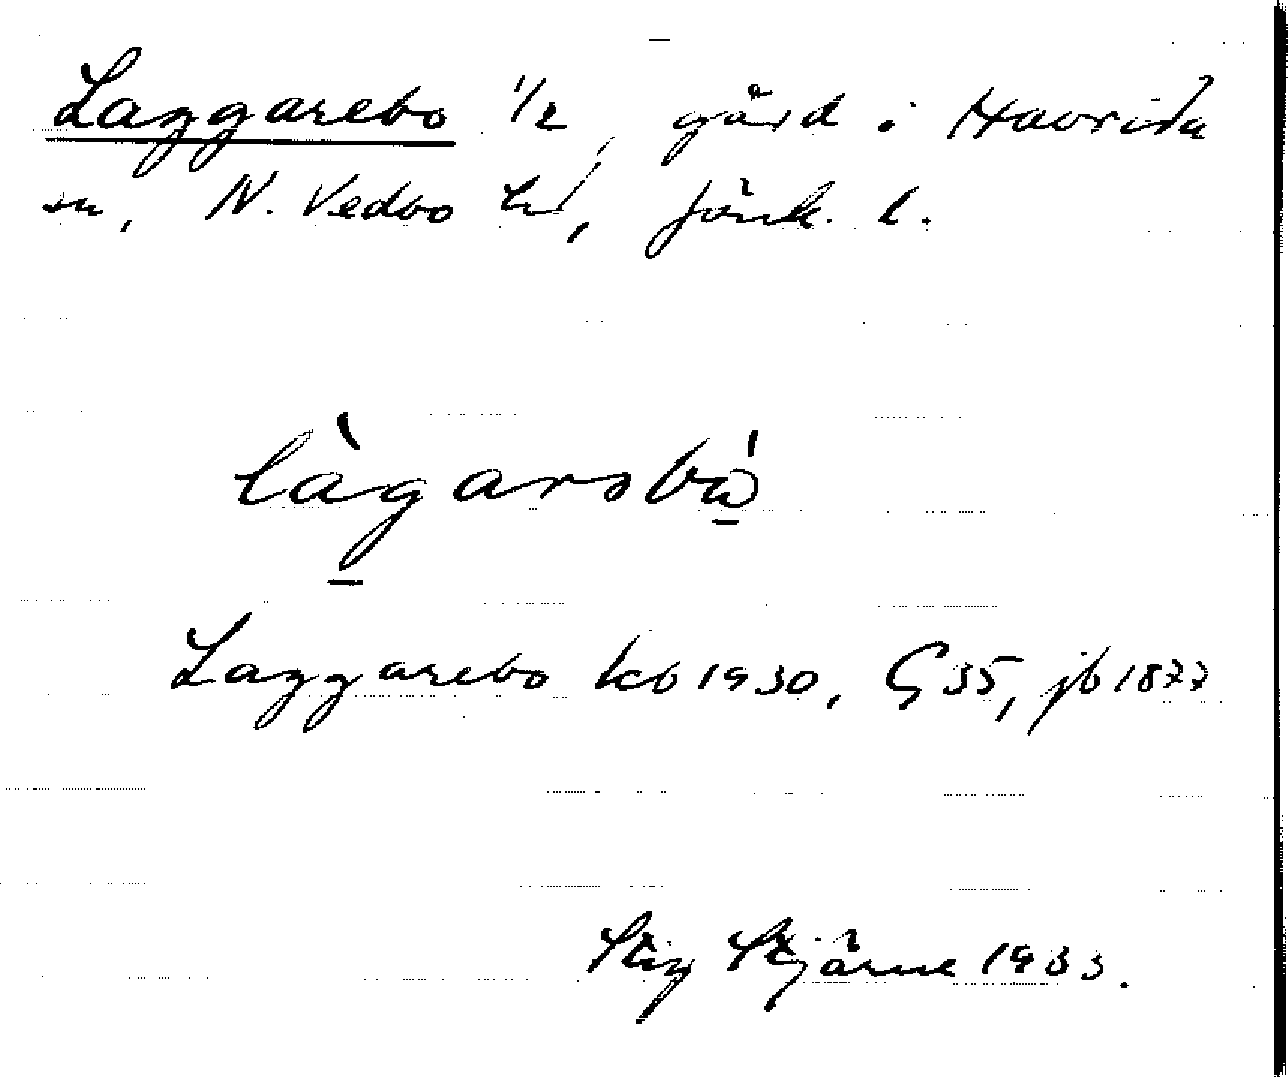 Laggarebo 1/2, gård i Haurida
sn, N. Vedbo hd, Jönk. l.
làgarsbó
Laggarebo kb 1930, G 35, jb 1877
Stig Stjärne 1933.